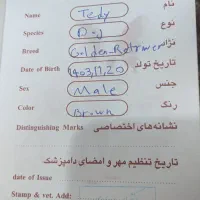 Name Tedy نام
Species Dog نوع
Breed Golden_Retriever نژاد
Date of Birth 1403,11,20 تاریخ تولد
Sex Male جنس
Color Brown رنگ
Distinguishing Marks نشانه‌های اختصاصی
تاریخ تنظیم مهر و امضای دامپزشک
date of Issue
Stamp & vet. Add: